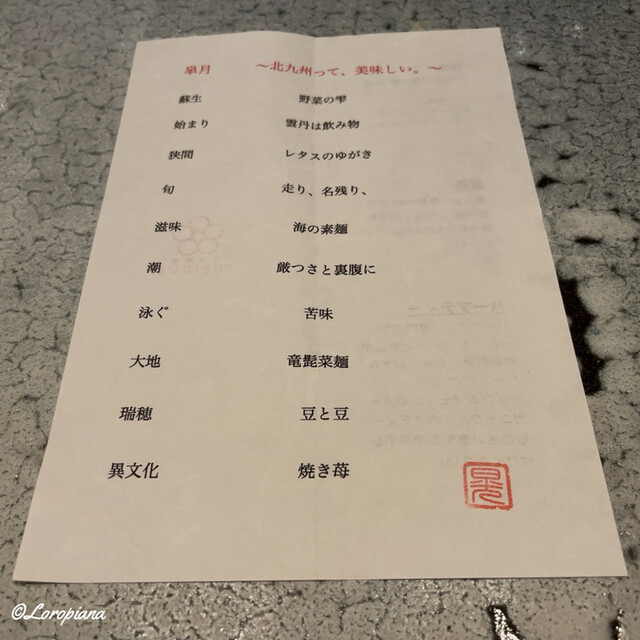 皐月 ～北九州って、美味しい。～
蘇生 野菜の雫
始まり 雲丹は飲み物
狭間 レタスのゆがき
旬 走り、名残り、
滋味 海の素麺
潮 厳つさと裏腹に
泳ぐ 苦味
大地 竜髭菜麺
瑞穂 豆と豆
異文化 焼き苺
©Loropiana